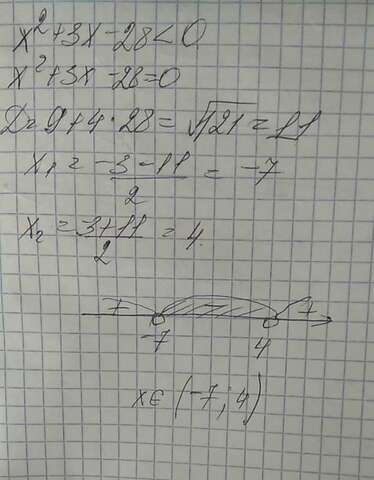 x²+3x-28<0
x²+3x-28=0
D=9+4·28=√121=11
x₁=-3-11/2=-7
x₂=3+11/2=4.
+ - +
-7 4
x∈(-7;4)